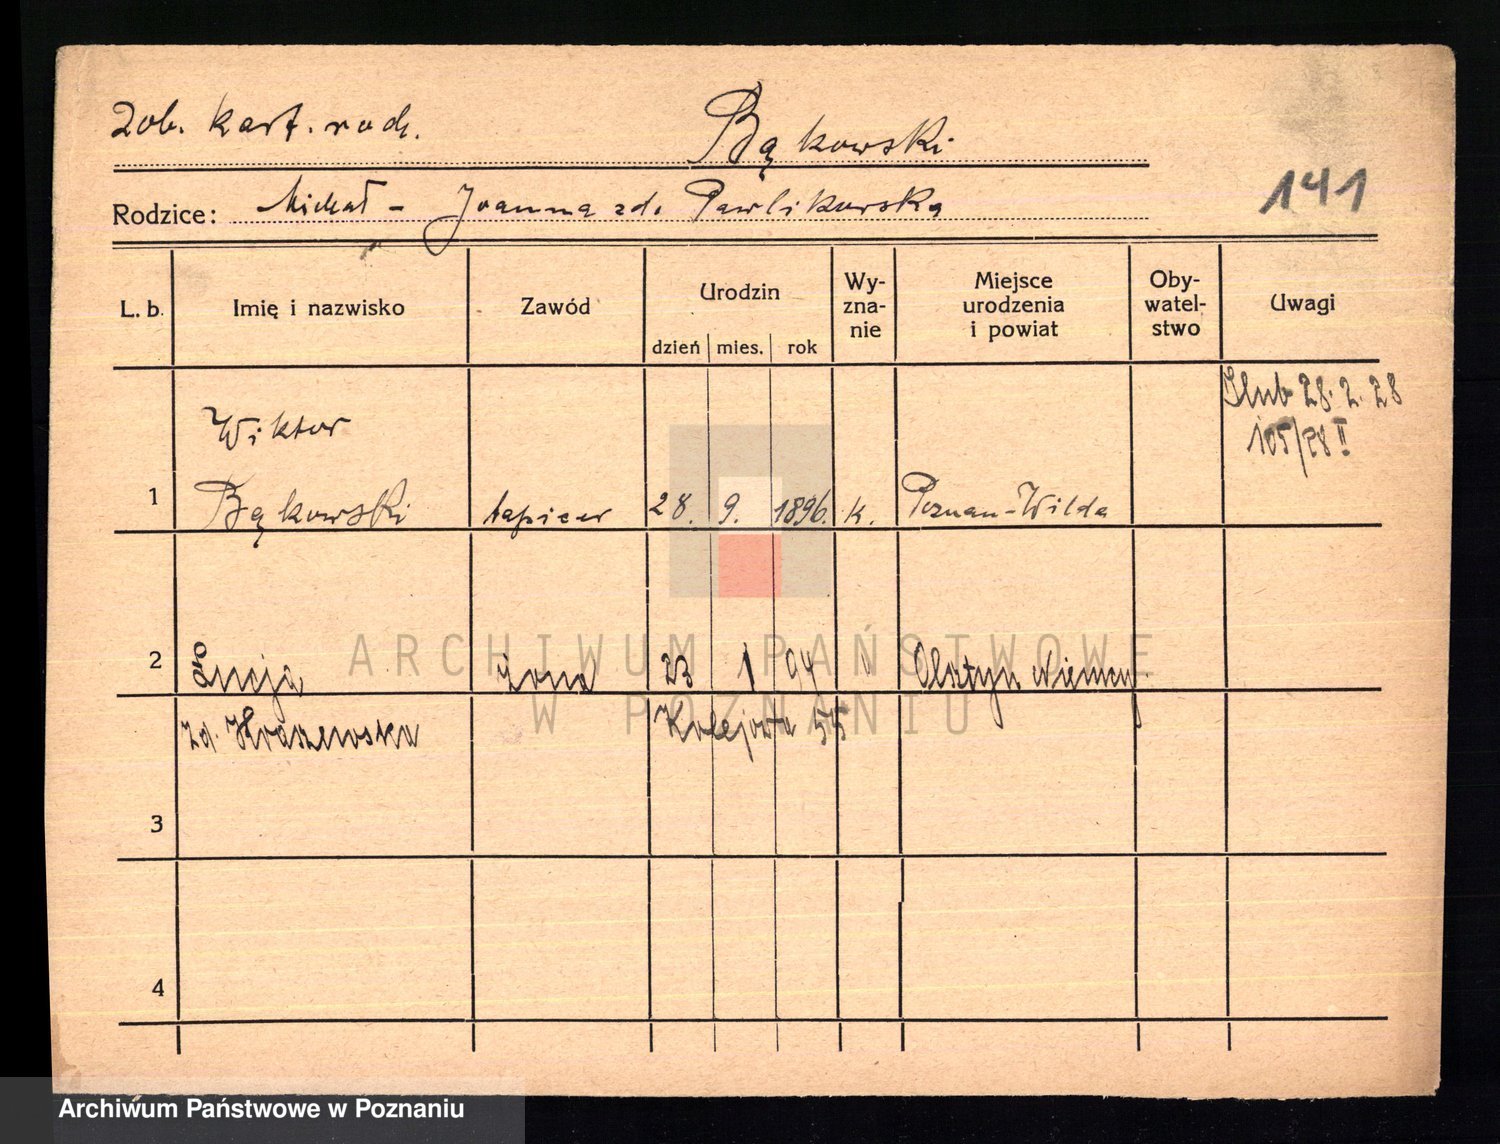 zob. kart. rodz. Bąkowski
Rodzice: Michał - Joanna zd. Pawlikowska
141
L. b. Imię i nazwisko Zawód Urodzin dzień mies. rok Wy-zna-nie Miejsce urodzenia i powiat Oby-watel-stwo Uwagi
Ślub 28. 2. 28
105/28 II
Wiktor
1 Bąkowski tapicer 28. 9. 1896. k. Poznań-Wilda
2 Łucja żona 23 1 94 Olsztyn Niemcy
zd. Kraszewska Kolejowa 55
3
4
ARCHIWUM PAŃSTWOWE
W POZNANIU
Archiwum Państwowe w Poznaniu